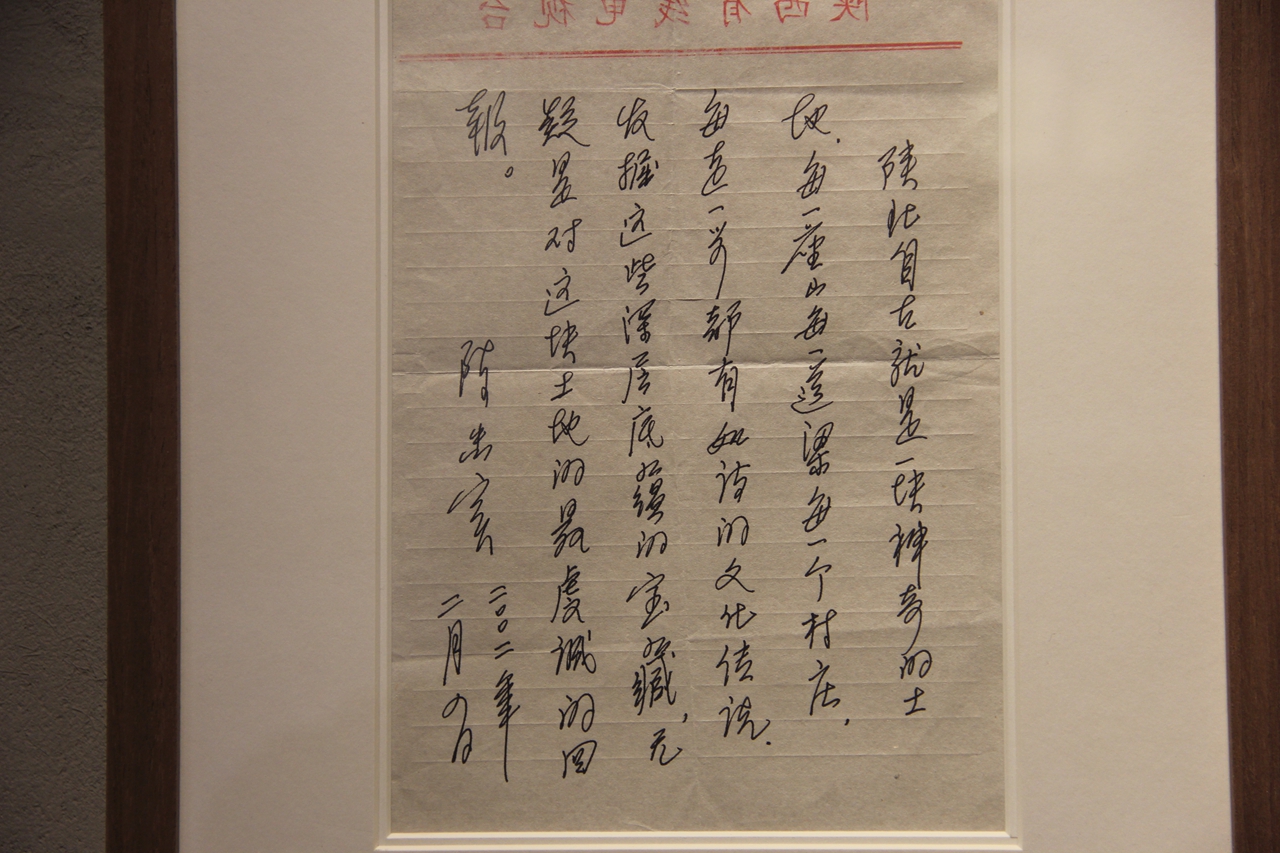 陕西有线电视台
陕北自古就是一块神奇的土
地，每一座山每一道梁每一个村庄，
每走一步都有如诗的文化传说.
发掘这些深层底蕴的宝藏，无
疑是对这块土地的最虔诚的回
报。
陈忠实
二〇〇二年
二月四日